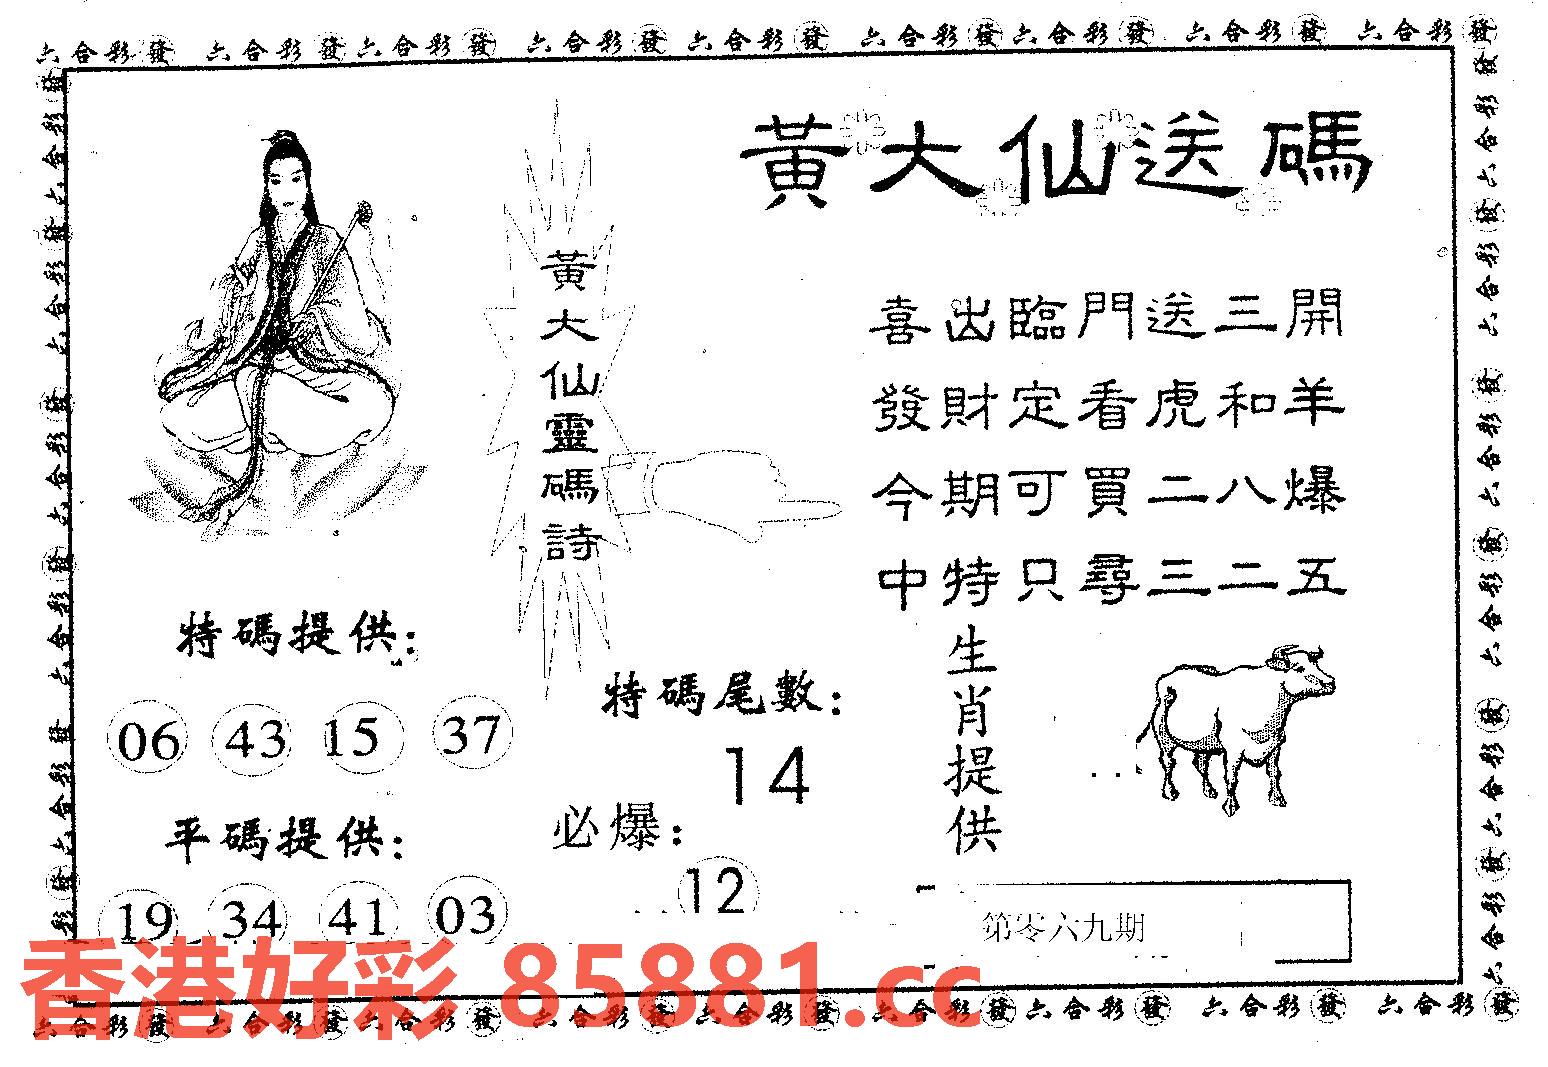 六合彩發 六合彩發 六合彩發 六合彩發 六合彩發 六合彩發 六合彩發 六合彩發 六合彩發
黃大仙送碼
黃大仙靈碼詩
喜出臨門送三開
發財定看虎和羊
今期可買二八爆
中特只尋三二五
特碼提供:
06 43 15 37
平碼提供:
19 34 41 03
特碼尾數:
14
必爆:
12
生肖提供
第零六九期
香港好彩 85881.cc
六合彩發 六合彩發 六合彩發 六合彩發 六合彩發 六合彩發 六合彩發 六合彩發 六合彩發